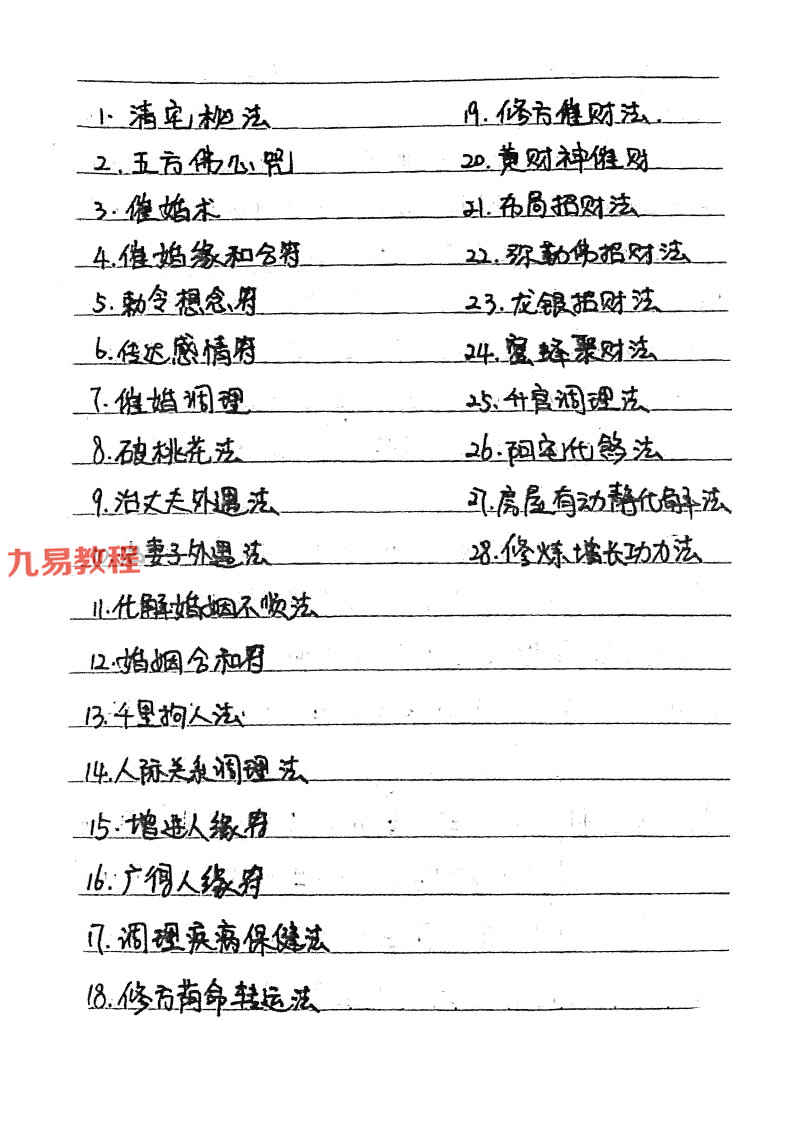 1. 清宅秘法
2. 五方佛心咒
3. 催婚术
4. 催婚缘和合符
5. 勅令想念符
6. 传达感情符
7. 催婚调理
8. 破桃花法
9. 治丈夫外遇法
妻子外遇法
11. 化解婚姻不顺法
12. 婚姻合和符
13. 千里拘人法
14. 人际关系调理法
15. 增进人缘符
16. 广得人缘符
17. 调理疾病保健法
18. 修方荫命转运法
19. 修方催财法.
20. 黄财神催财
21. 布局招财法
22. 弥勒佛招财法
23. 龙银招财法
24. 蜜蜂聚财法
25. 升官调理法
26. 阳宅化煞法
27. 房屋有动静化解法
28. 修炼增长功力法
九易教程